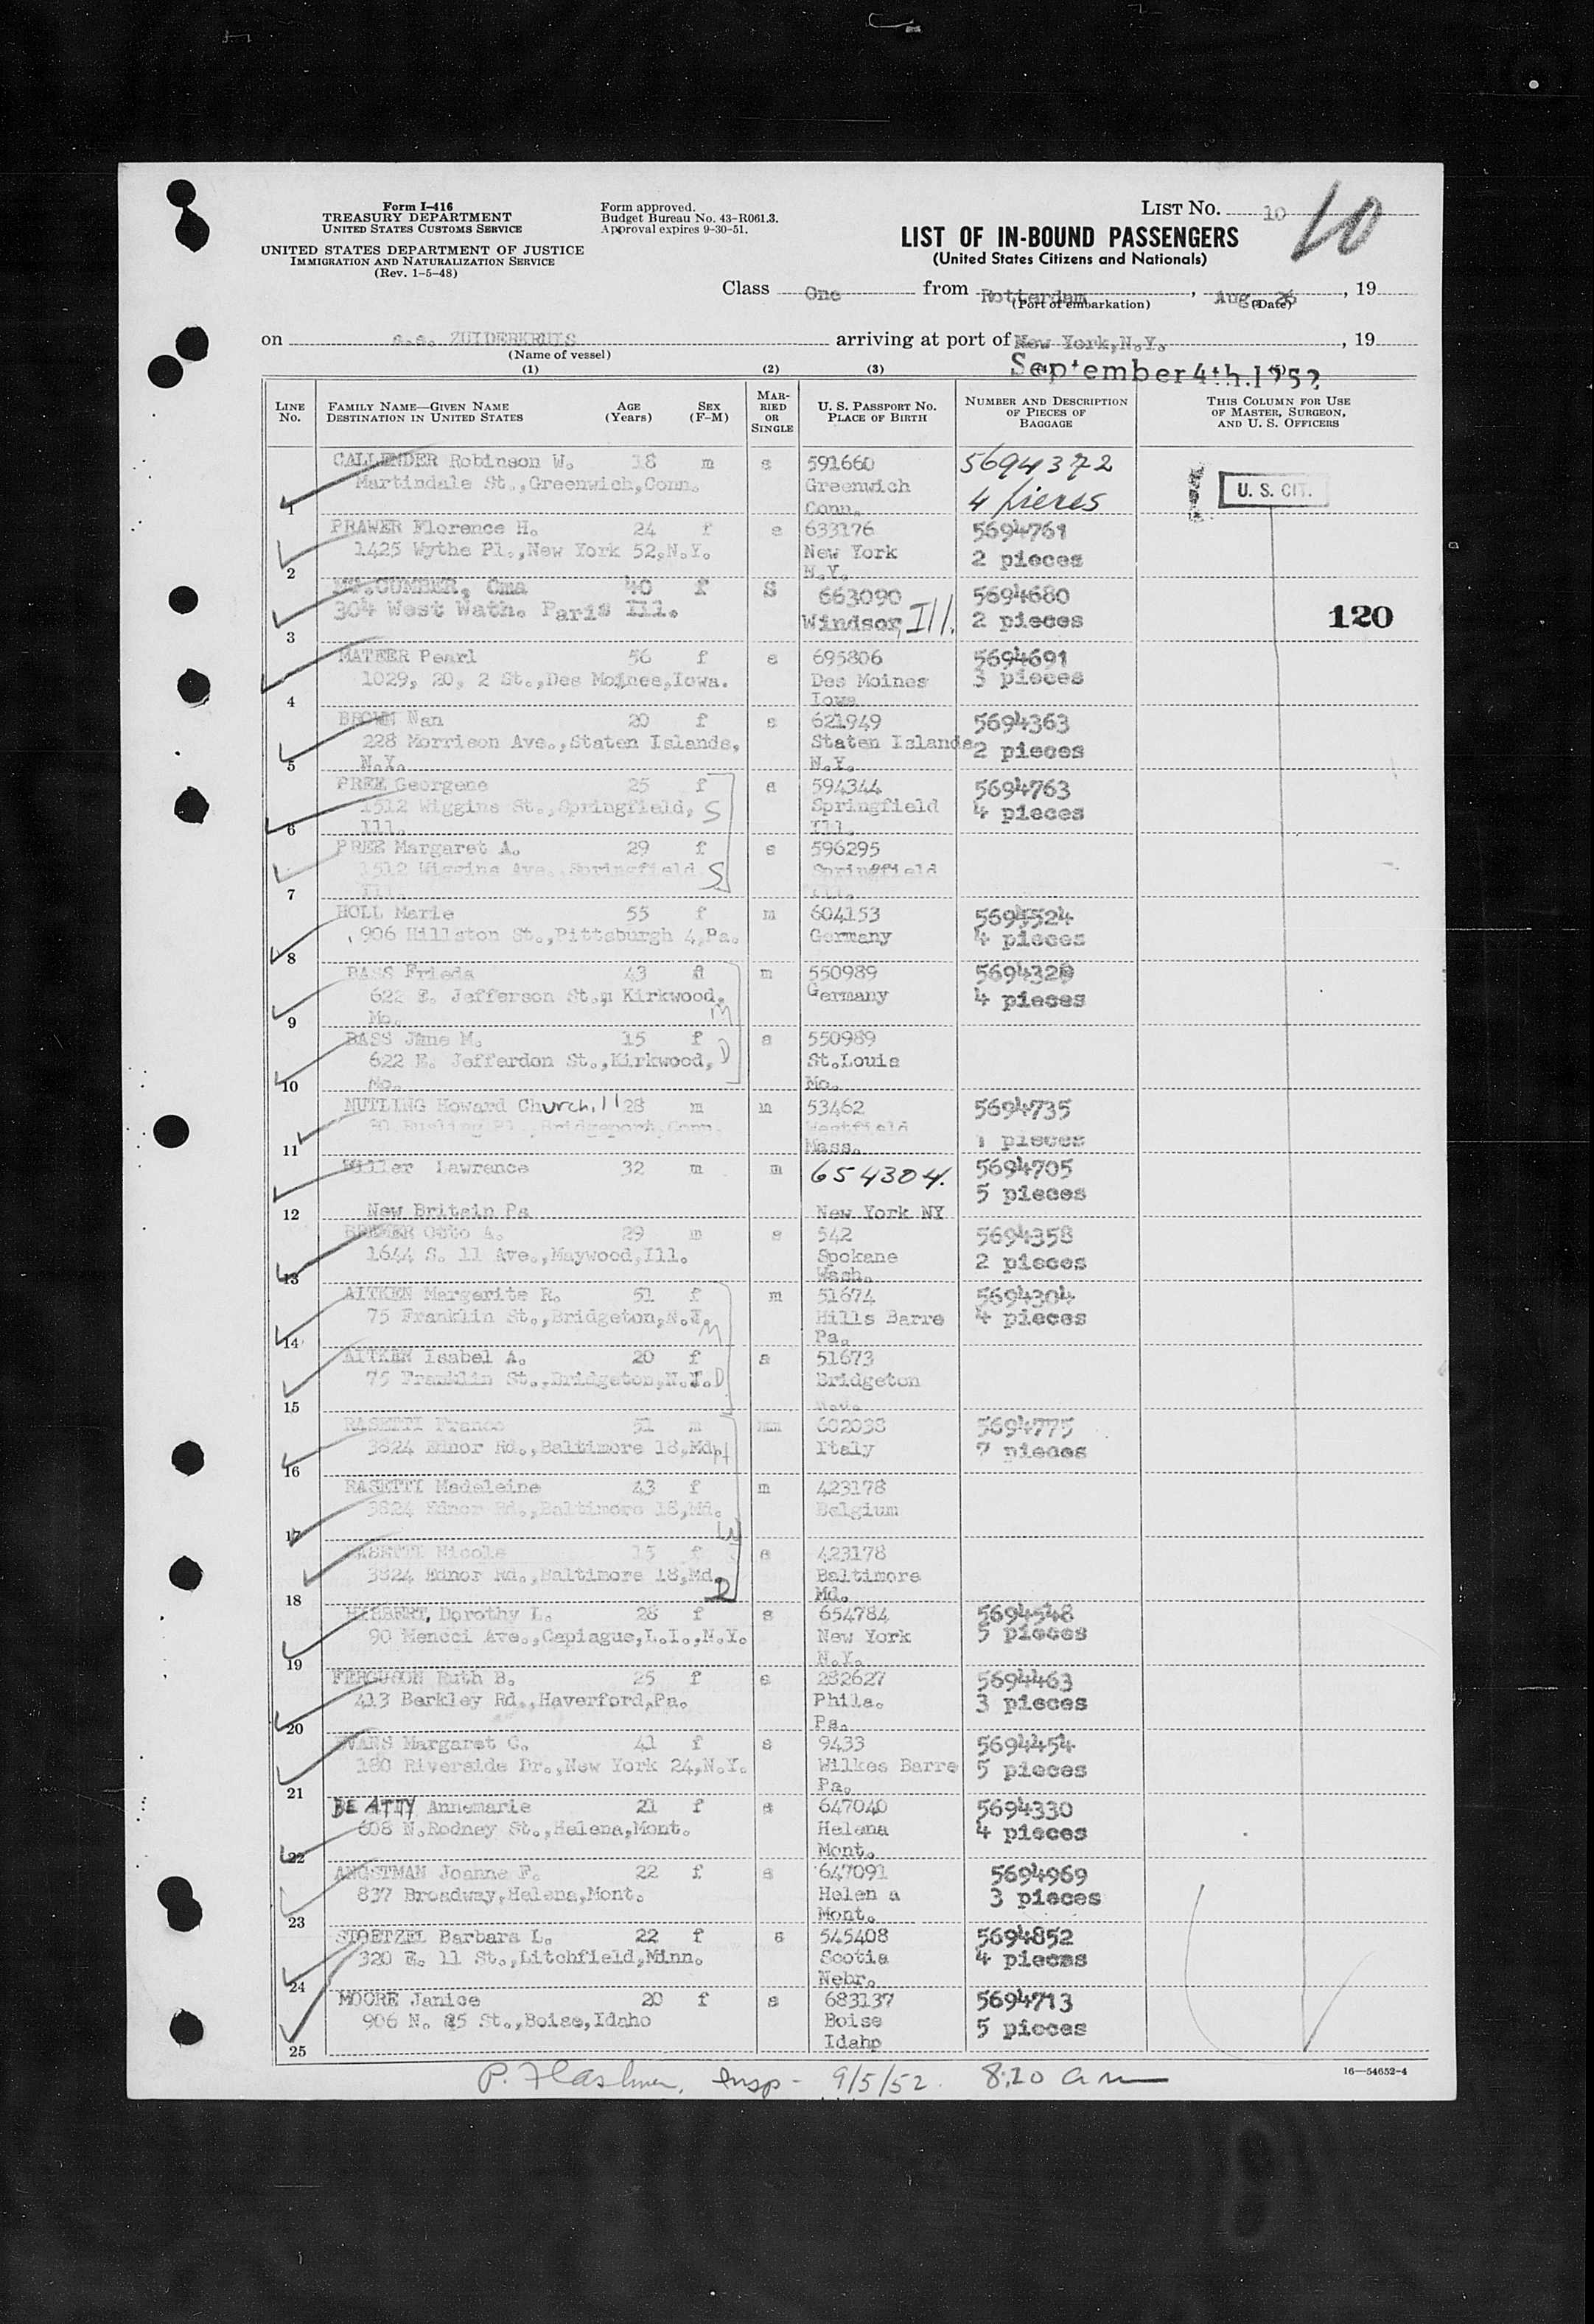 Form I-416
TREASURY DEPARTMENT
UNITED STATES CUSTOMS SERVICE
UNITED STATES DEPARTMENT OF JUSTICE
IMMIGRATION AND NATURALIZATION SERVICE
(Rev. 1-5-48)
Form approved.
Budget Bureau No. 43-R061.3.
Approval expires 9-30-51.
LIST NO. 10 10
LIST OF IN-BOUND PASSENGERS
(United States Citizens and Nationals)
Class One from Rotterdam, Aug. 26, 19
(Port of embarkation) (Date)
on s.s. ZUIDERKRUIS arriving at port of New York,N.Y., 19
(Name of vessel)
September 4th.1952
(1) (2) (3) (4) (5)
LINE No. FAMILY NAME—GIVEN NAME DESTINATION IN UNITED STATES AGE (Years) SEX (F-M) MARRIED OR SINGLE U. S. PASSPORT NO. PLACE OF BIRTH NUMBER AND DESCRIPTION OF PIECES OF BAGGAGE THIS COLUMN FOR USE OF MASTER, SURGEON, AND U. S. OFFICERS
CALLENDER Robinson W. 18 m s 591660 5694372
Martindale St.,Greenwich,Conn. Greenwich 4 pieces U. S. CIT.
1 Conn.
PRAWER Florence H. 24 f s 633176 5694761
1425 Wythe Pl.,New York 52,N.Y. New York 2 pieces
2 N.Y.
Oma 40 f S 663090 5694680
304 West Wath. Paris Ill. Windsor, Ill. 2 pieces 120
3
MATEER Pearl 56 f s 695806 5694691
1029, 20, 2 St.,Des Moines,Iowa. Des Moines 3 pieces
4 Iowa
BROWN Nan 20 f s 621949 5694363
228 Morrison Ave.,Staten Islande, Staten Islande 2 pieces
5 N.Y. N.Y.
PREE Georgene 25 f s 594344 5694763
1512 Wiggins St.,Springfield, S Springfield 4 pieces
6 Ill. Ill.
PREE Margaret A. 29 f s 596295
1512 Wiggins Ave.,Springfield S Springfield
7 Ill. Ill.
HOLL Marie 55 f m 604153 5694524
906 Hillston St.,Pittsburgh 4,Pa. Germany 4 pieces
8
BASS Frieda 43 f m 550989 5694320
622 E. Jefferson St.m Kirkwood, Germany 4 pieces
9 Mo. M
BASS Jane M. 15 f s 550989
622 E. Jefferdon St.,Kirkwood, D St.Louis
10 Mo. Mo.
NUTLING Howard Churchill 28 m m 53462 5694735
Bridgeport,Conn. Westfield 1 pieces
11 Mass.
Miller Lawrance 32 m m 654304. 5694705
5 pieces
12 New Britain Pa New York NY
BREMER Otto A. 29 m s 542 5694358
1644 S. 11 Ave.,Maywood,Ill. Spokane 2 pieces
13 Wash.
AITKEN Margerite R. 51 f m 51674 5694304
75 Franklin St.,Bridgeton,N.J. M Hills Barre 4 pieces
14 Pa.
AITKEN Isabel A. 20 f s 51673
75 Franklin St.,Bridgeton,N.J. D Bridgeton
15 N.J.
RASETTI Franco 51 m m 682038 5694775
3824 Ednor Rd.,Baltimore 18,Md. H Italy 7 pieces
16
RASETTI Madeleine 43 f m 423178
3824 Ednor Rd.,Baltimore 18,Md. Belgium
17 W
RASETTI Nicole 15 f s 423178
3824 Ednor Rd.,Baltimore 18,Md. D Baltimore
18 Md.
HIBBERT, Dorothy L. 28 f s 654784 5694548
90 Mencci Ave.,Copiague,L.I.,N.Y. New York 5 pieces
19 N.Y.
FERGUSON Ruth B. 25 f s 282627 5694463
413 Barkley Rd.,Haverford,Pa. Phila. 3 pieces
20 Pa.
EVANS Margaret G. 41 f s 9433 5694454
180 Riverside Dr.,New York 24,N.Y. Wilkes Barre 5 pieces
21 Pa.
BEATTY Annemarie 21 f s 647040 5694330
608 N.Rodney St.,Helena,Mont. Helena 4 pieces
22 Mont.
ANGSTMAN Joanne F. 22 f s 647091 5694969
837 Broadway,Helena,Mont. Helen a 3 pieces
23 Mont.
STOETZEL Barbara L. 22 f s 545408 5694852
320 E. 11 St.,Litchfield,Minn. Scotia 4 pieces
24 Nebr.
MOORE Janice 20 f s 683137 5694713
906 N. 25 St.,Boise,Idaho Boise 5 pieces
25 Idaho
P. Flashner, Insp - 9/5/52. 8:20 am 16—54652-4